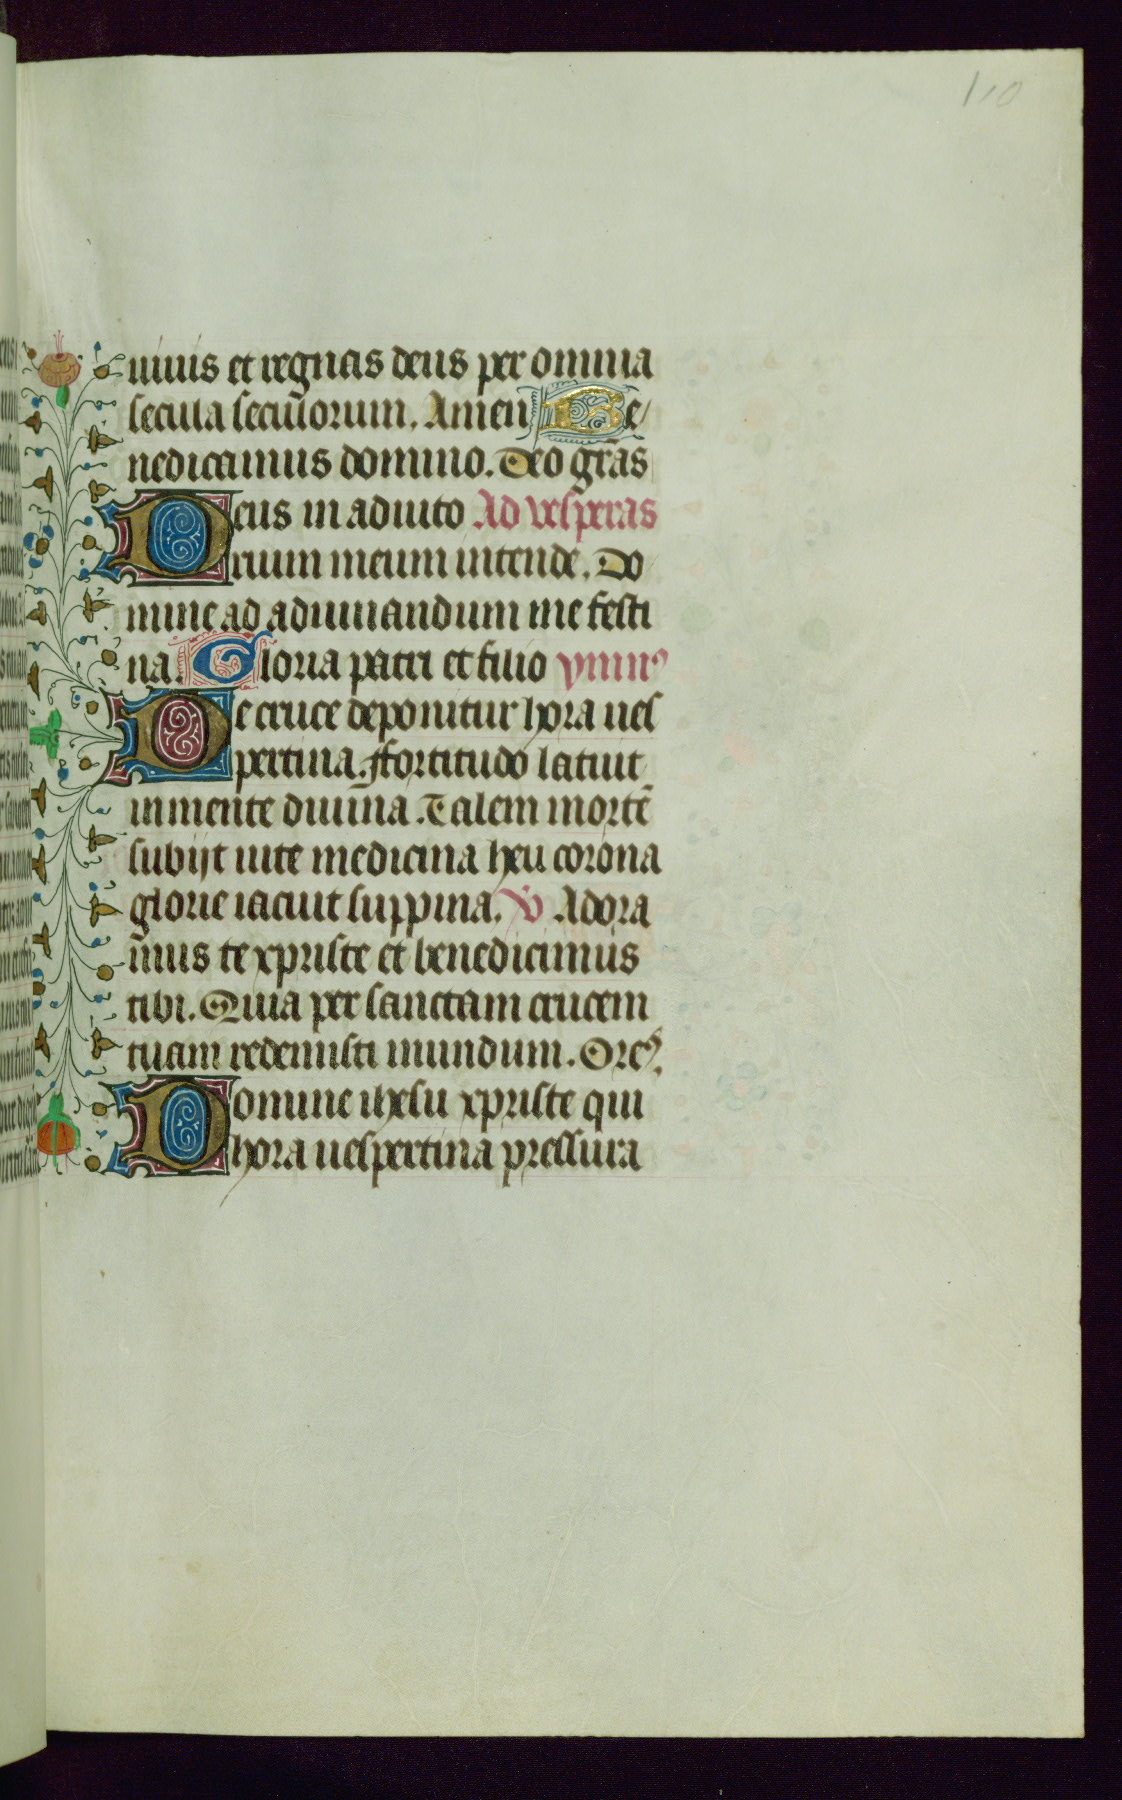 110
uiuis et regnas deus per omnia
secula seculorum. Amen Be
nedicamus domino. Deo gras
Deus in adiuto Ad vesperas
rium meum intende. Do
mine ad adiuuandum me festi
na. Gloria patri et filio ymnus
De cruce deponitur hora ues
pertina. ffortitudo latuit
in mente diuina. Talem mortē
subijt uite medicina heu corona
glorie iacuit suppina. V Adora
mus te xpriste et benedicimus
tibi. Quia per sanctam crucem
tuam redemisti mundum. Oreꝰ.
Domine ihesu xpriste qui
hora uespertina pressura